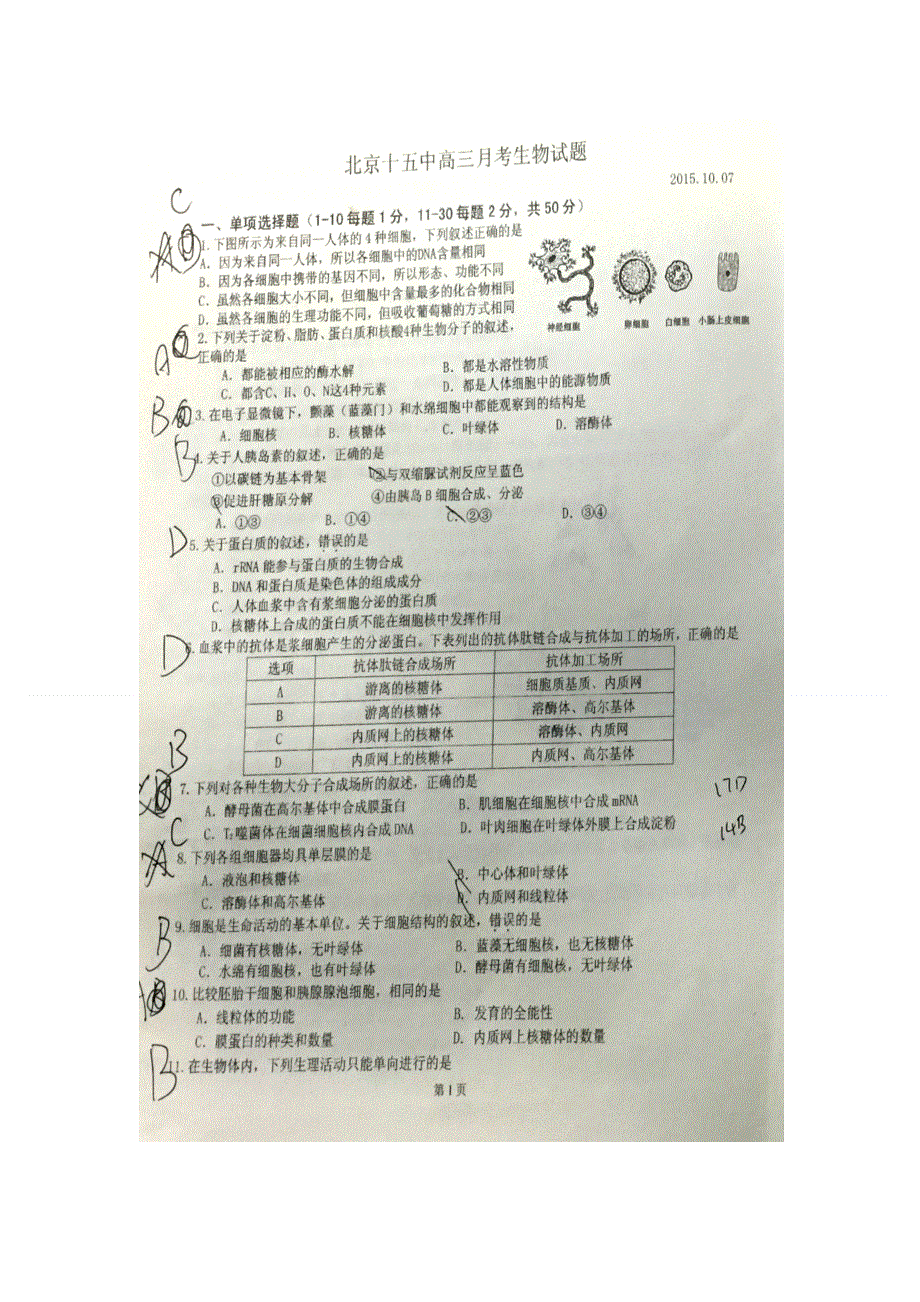 北京十五中高三月考生物试题
2015.10.07
C
一、单项选择题（1-10每题1分，11-30每题2分，共50分）
A
1.下图所示为来自同一人体的4种细胞，下列叙述正确的是
A．因为来自同一人体，所以各细胞中的DNA含量相同
B．因为各细胞中携带的基因不同，所以形态、功能不同
C．虽然各细胞大小不同，但细胞中含量最多的化合物相同
D．虽然各细胞的生理功能不同，但吸收葡萄糖的方式相同
神经细胞 卵细胞 白细胞 小肠上皮细胞
A
2.下列关于淀粉、脂肪、蛋白质和核酸4种生物分子的叙述，
正确的是
A．都能被相应的酶水解 B．都是水溶性物质
C．都含C、H、O、N这4种元素 D．都是人体细胞中的能源物质
B
3.在电子显微镜下，颤藻（蓝藻门）和水绵细胞中都能观察到的结构是
A．细胞核 B．核糖体 C．叶绿体 D．溶酶体
B
4.关于人胰岛素的叙述，正确的是
①以碳链为基本骨架 ②与双缩脲试剂反应呈蓝色
③促进肝糖原分解 ④由胰岛B细胞合成、分泌
A．①③ B．①④ C．②③ D．③④
D
5.关于蛋白质的叙述，错误的是
A．rRNA能参与蛋白质的生物合成
B．DNA和蛋白质是染色体的组成成分
C．人体血浆中含有浆细胞分泌的蛋白质
D．核糖体上合成的蛋白质不能在细胞核中发挥作用
D
6.血浆中的抗体是浆细胞产生的分泌蛋白。下表列出的抗体肽链合成与抗体加工的场所，正确的是
选项 抗体肽链合成场所 抗体加工场所
A 游离的核糖体 细胞质基质、内质网
B 游离的核糖体 溶酶体、高尔基体
C 内质网上的核糖体 溶酶体、内质网
D 内质网上的核糖体 内质网、高尔基体
B
7.下列对各种生物大分子合成场所的叙述，正确的是
A．酵母菌在高尔基体中合成膜蛋白 B．肌细胞在细胞核中合成mRNA
17D
C．T₂噬菌体在细菌细胞核内合成DNA D．叶肉细胞在叶绿体外膜上合成淀粉
14B
C
A
8.下列各组细胞器均具单层膜的是
A．液泡和核糖体 B．中心体和叶绿体
C．溶酶体和高尔基体 D．内质网和线粒体
B
9.细胞是生命活动的基本单位。关于细胞结构的叙述，错误的是
A．细菌有核糖体，无叶绿体 B．蓝藻无细胞核，也无核糖体
C．水绵有细胞核，也有叶绿体 D．酵母菌有细胞核，无叶绿体
A
10.比较胚胎干细胞和胰腺腺泡细胞，相同的是
A．线粒体的功能 B．发育的全能性
C．膜蛋白的种类和数量 D．内质网上核糖体的数量
B
11.在生物体内，下列生理活动只能单向进行的是
第1页